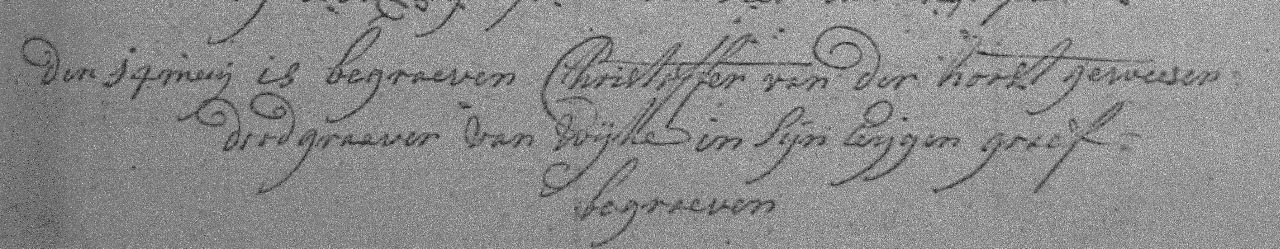 den 14 meij is begraeven Christoffer van der horst geweesen
doodgraever van Wijlle in Sijn Eijgen graef
begraeven